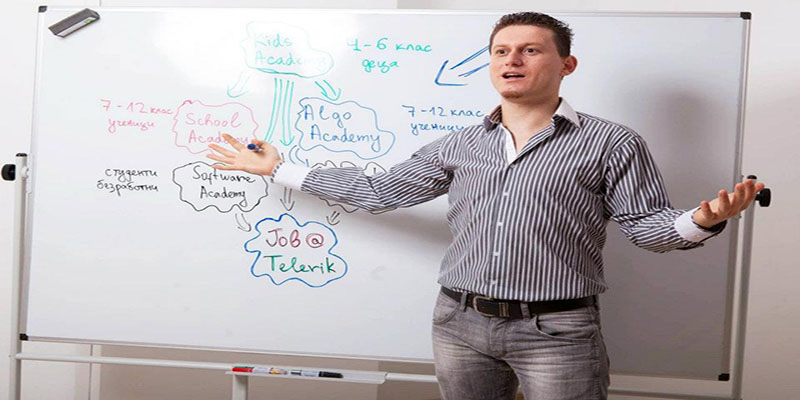 Kids
Academy
1-6 клас
деца
7-12 клас
ученици
School
Academy
Algo
Academy
7-12 клас
ученици
студенти
безработни
Software
Academy
Job @
Telerik